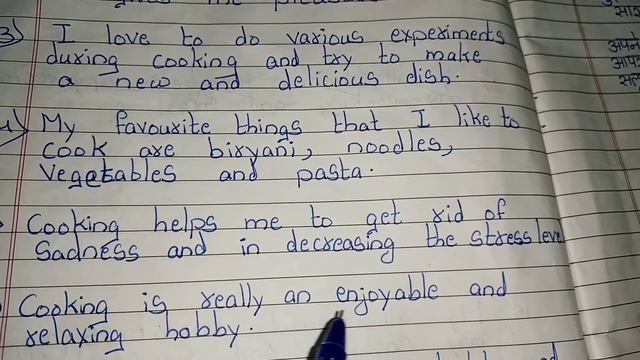 3) I love to do various experiments
during cooking and try to make
a new and delicious dish.
4) My favourite things that I like to
cook are biryani, noodles,
vegetables and pasta.
Cooking helps me to get rid of
sadness and in decreasing the stress level
Cooking is really an enjoyable and
relaxing hobby.